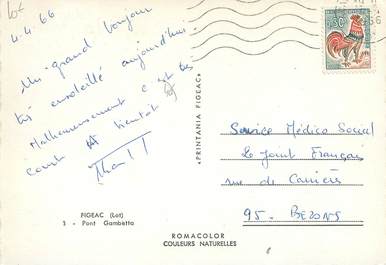 lot
4.4.66
Un grand bonjour
très ensoleillé aujourd'hui.
Malheureusement c'est très
court à bientôt
"PRINTANIA FIGEAC"
0,30
66
Service Médico Social
Le Joint Français
rue de Carrières
95 - BEZONS
FIGEAC (Lot)
3 - Pont Gambetta
ROMACOLOR
COULEURS NATURELLES